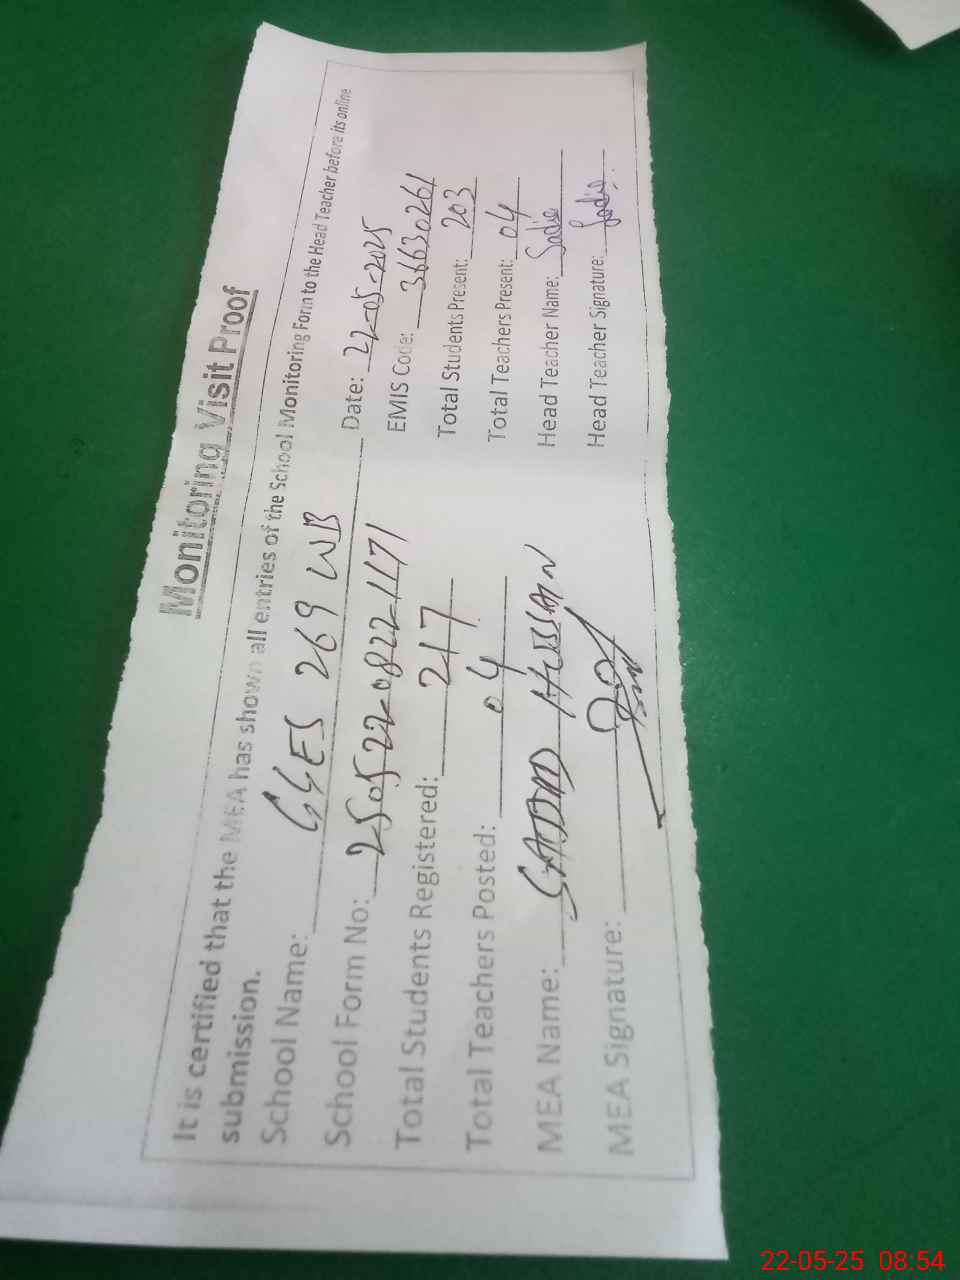 Monitoring Visit Proof
It is certified that the MEA has shown all entries of the School Monitoring Form to the Head Teacher before its online
submission.
School Name: GGES 269 WB Date: 22-05-2025
School Form No: 250522-0822-1171 EMIS Code: 36630261
Total Students Registered: 217 Total Students Present: 203
Total Teachers Posted: 04 Total Teachers Present: 04
MEA Name: SADDAM HUSSAIN Head Teacher Name: Sadia
MEA Signature: Head Teacher Signature: Sadia
22-05-25 08:54